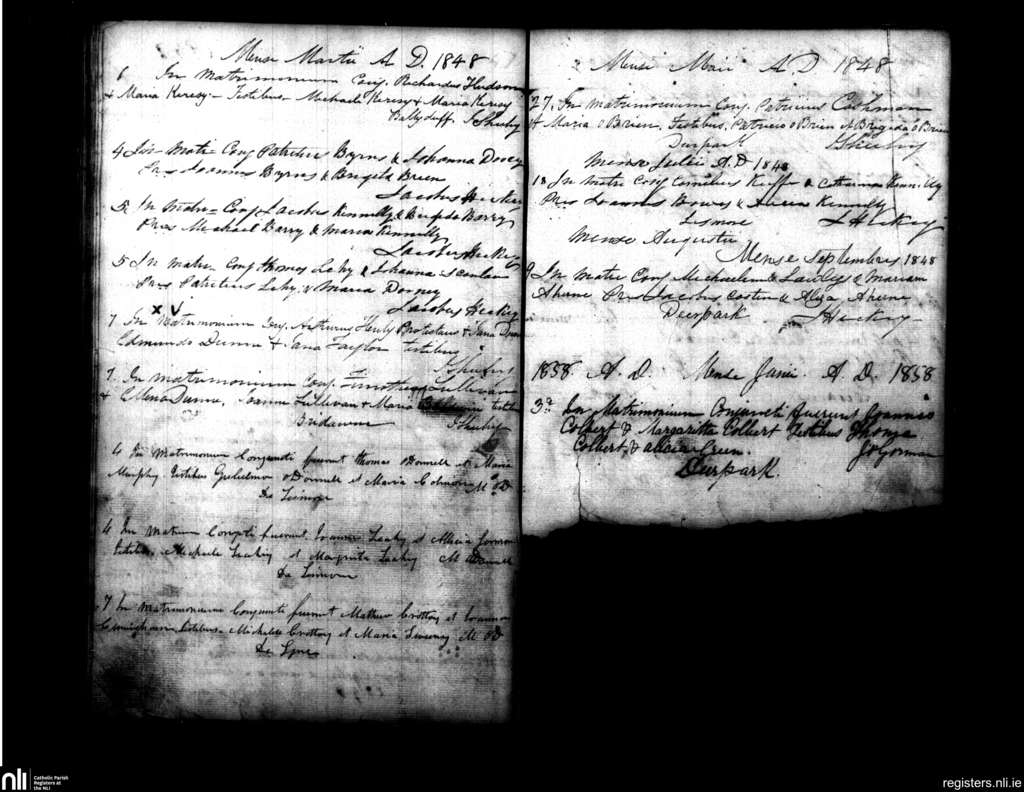 Mense Martii A D. 1848
6 In Matrimonium Conj. Richardus Hudson
& Maria Keresy Testibus Michaele Keresy & Maria Keresy
Ballyduff. J Sheehy
4 In Mats Conj Patritius Byrns & Johanna
Prs Joannes Byrns & Brigida Brien
Jacobus Hickey
5 In Matre Conj Jacobus Kennelly & Brigida Barry
Prs Michael Barry & Maria Kennelly
Jacobus Hickey
5 In Matre Conj Thomas Lahy & Johanna
Prs Patritius Lahy & Maria Dorney
Jacobus Hickey
X V
7 In Matrimonium Conj. Arthurus Protestans & Jana
Edmundo Dunn & Jana Taylor testibus
J Sheehy
7. In Matrimonium Conj. Timotheus Sullivan
& Ellena Dunne, Joanne Sullivan & Maria
J Sheehy
4 In Matrimonium Conjuncti fuerunt Thomas O'Donnell et Maria
Murphy. Testibus Gulielmo O'Donnell et Maria M O'D
De Lismore
4 In Matrium Conjuncti fuerunt Leahy et Alicia Gorman
testibus Michaele Leahy et Margarita Leahy M O'Donnell
De Lismore
7 In Matrimonium Conjuncti fuerunt Mathew Crottory et Joanna
testibus Michaele Crottory et Maria Sweeney M O'D
De
Mense Maii A D 1848
27. In Matrimonium Conj. Patricius Cashman
& Maria O Brien. Testibus, Patricio O Brien & Brigida O Brien
Deerpark J Sheehy
Mense Julii A.D 1848
18 In Matre Conj Cornelius Keeffe & Catherina Kennelly
Prs Joannes Bowes & Kennelly
Lismore J Hickey
Mense Augusti
Mense Septembres 1848
9 In Matre Conj Michaelem & Mariam
Ahune Prs Jacobus Costin & Aliza Ahune
Deerpark J Hickey
1858. A. D. Mense Junii A. D. 1858
3a In Matrimonium Conjuncti fuerunt Joannes
Colbert & Margaritta Colbert Testibus Thoma
Colbert & Alicia Green. J O'Gorman
Deerpark.
nli Catholic Parish
Registers at
the NLI
registers.nli.ie